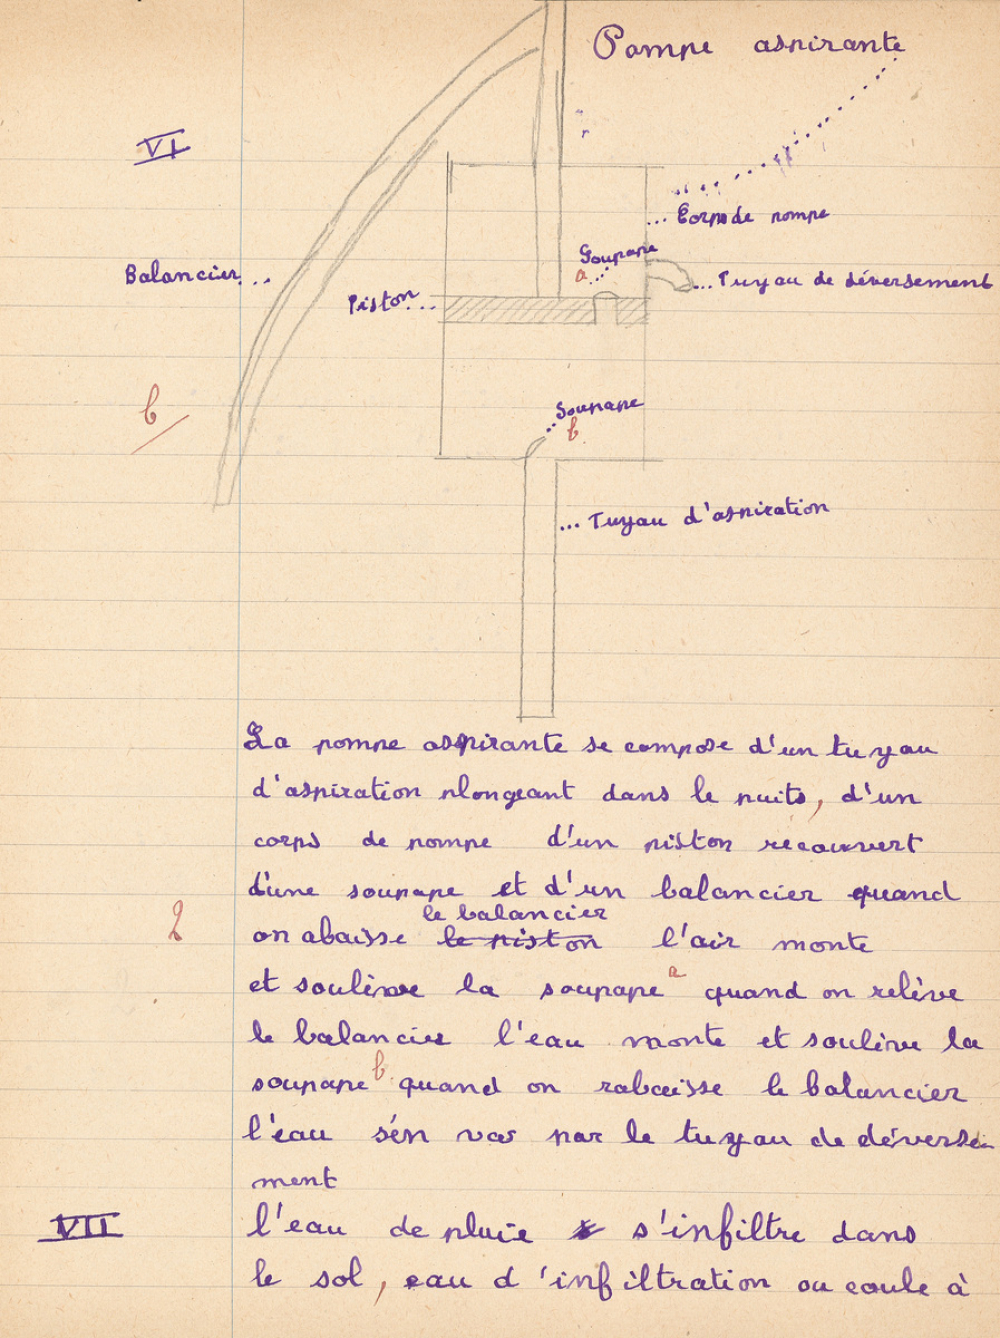 Pompe aspirante
VI
Corps de pompe
Soupape
a
Balancier
Tuyau de déversement
Piston
6
Soupape
b
Tuyau d'aspiration
La pompe aspirante se compose d'un tuyau
d'aspiration plongeant dans le puits, d'un
corps de pompe d'un piston recouvert
d'une soupape et d'un balancier quand
le balancier
on abaisse le piston l'air monte
2
et soulève la soupape a quand on relève
le balancier l'eau monte et soulève la
soupape b quand on rabaisse le balancier
l'eau s'én va par le tuyau de déverse
ment
VII
l'eau de pluie s'infiltre dans
le sol, eau d'infiltration ou coule à